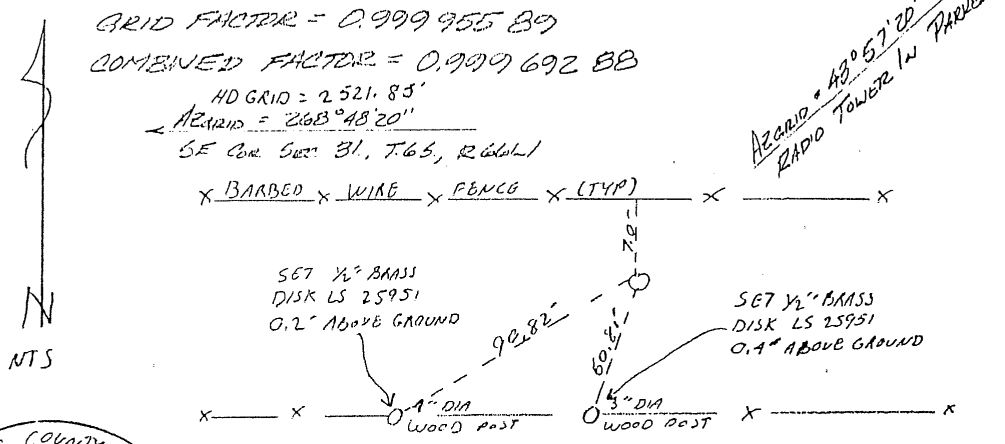 GRID FACTOR = 0.999 955 89
COMBINED FACTOR = 0.999 692 88
HD GRID = 2521.85'
AZGRID = 268°48'20"
SE COR SEC 31, T6S, R66W
AZGRID = 43°57'20"
RADIO TOWER IN PARKER
X BARBED X WIRE X FENCE X (TYP) X X
7.0'
SET ½" BRASS
DISK LS 25951
0.2' ABOVE GROUND
SET ½" BRASS
DISK LS 25951
0.4' ABOVE GROUND
90.82'
60.81'
N
NTS
X X 4" DIA
WOOD POST
3" DIA
WOOD POST
X X
COUNTY